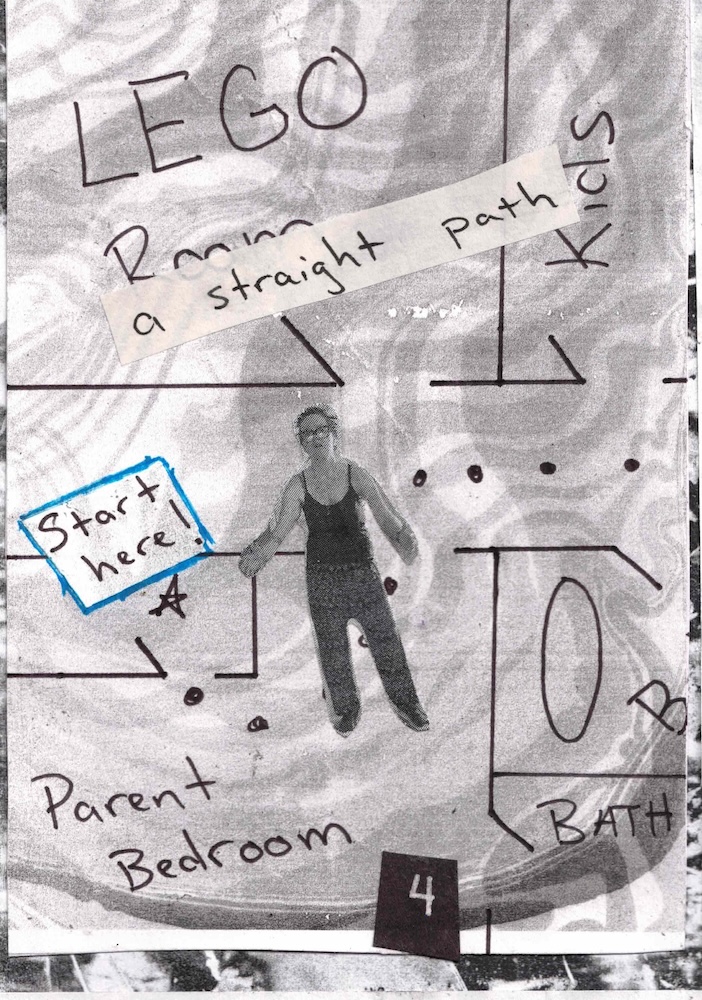 LEGO
Room
a straight path
Kids
Start
here!
B
Parent
Bedroom
BATH
4